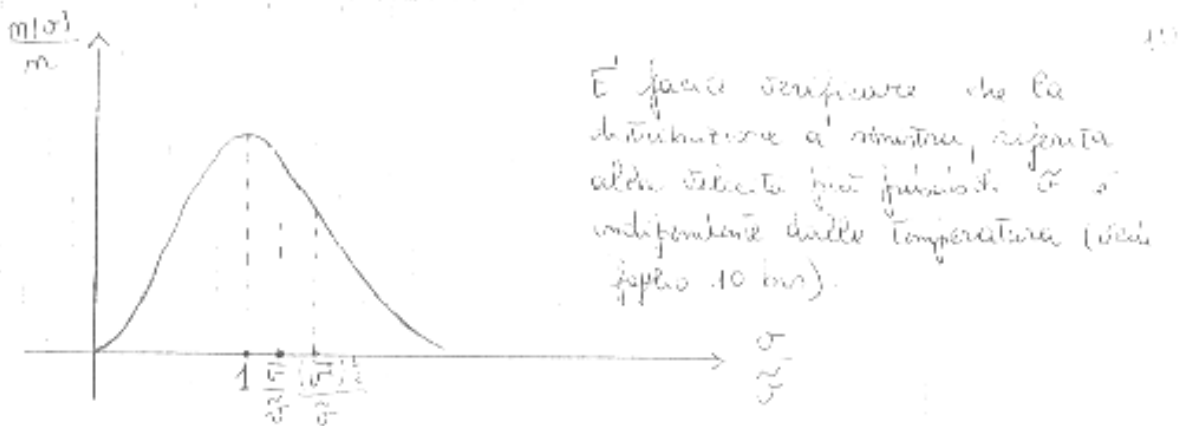 n(v)
n
È facile verificare che la
distribuzione a sinistra, riferita
alla velocità più probabile ṽ è
indipendente dalla temperatura (vedi
foglio 10 bis).
v
ṽ
1 v̄/ṽ
ṽ